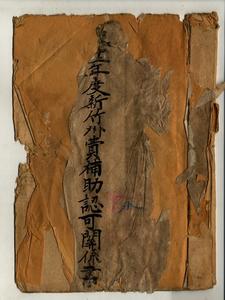 十一年度新竹州費補助認可關係書